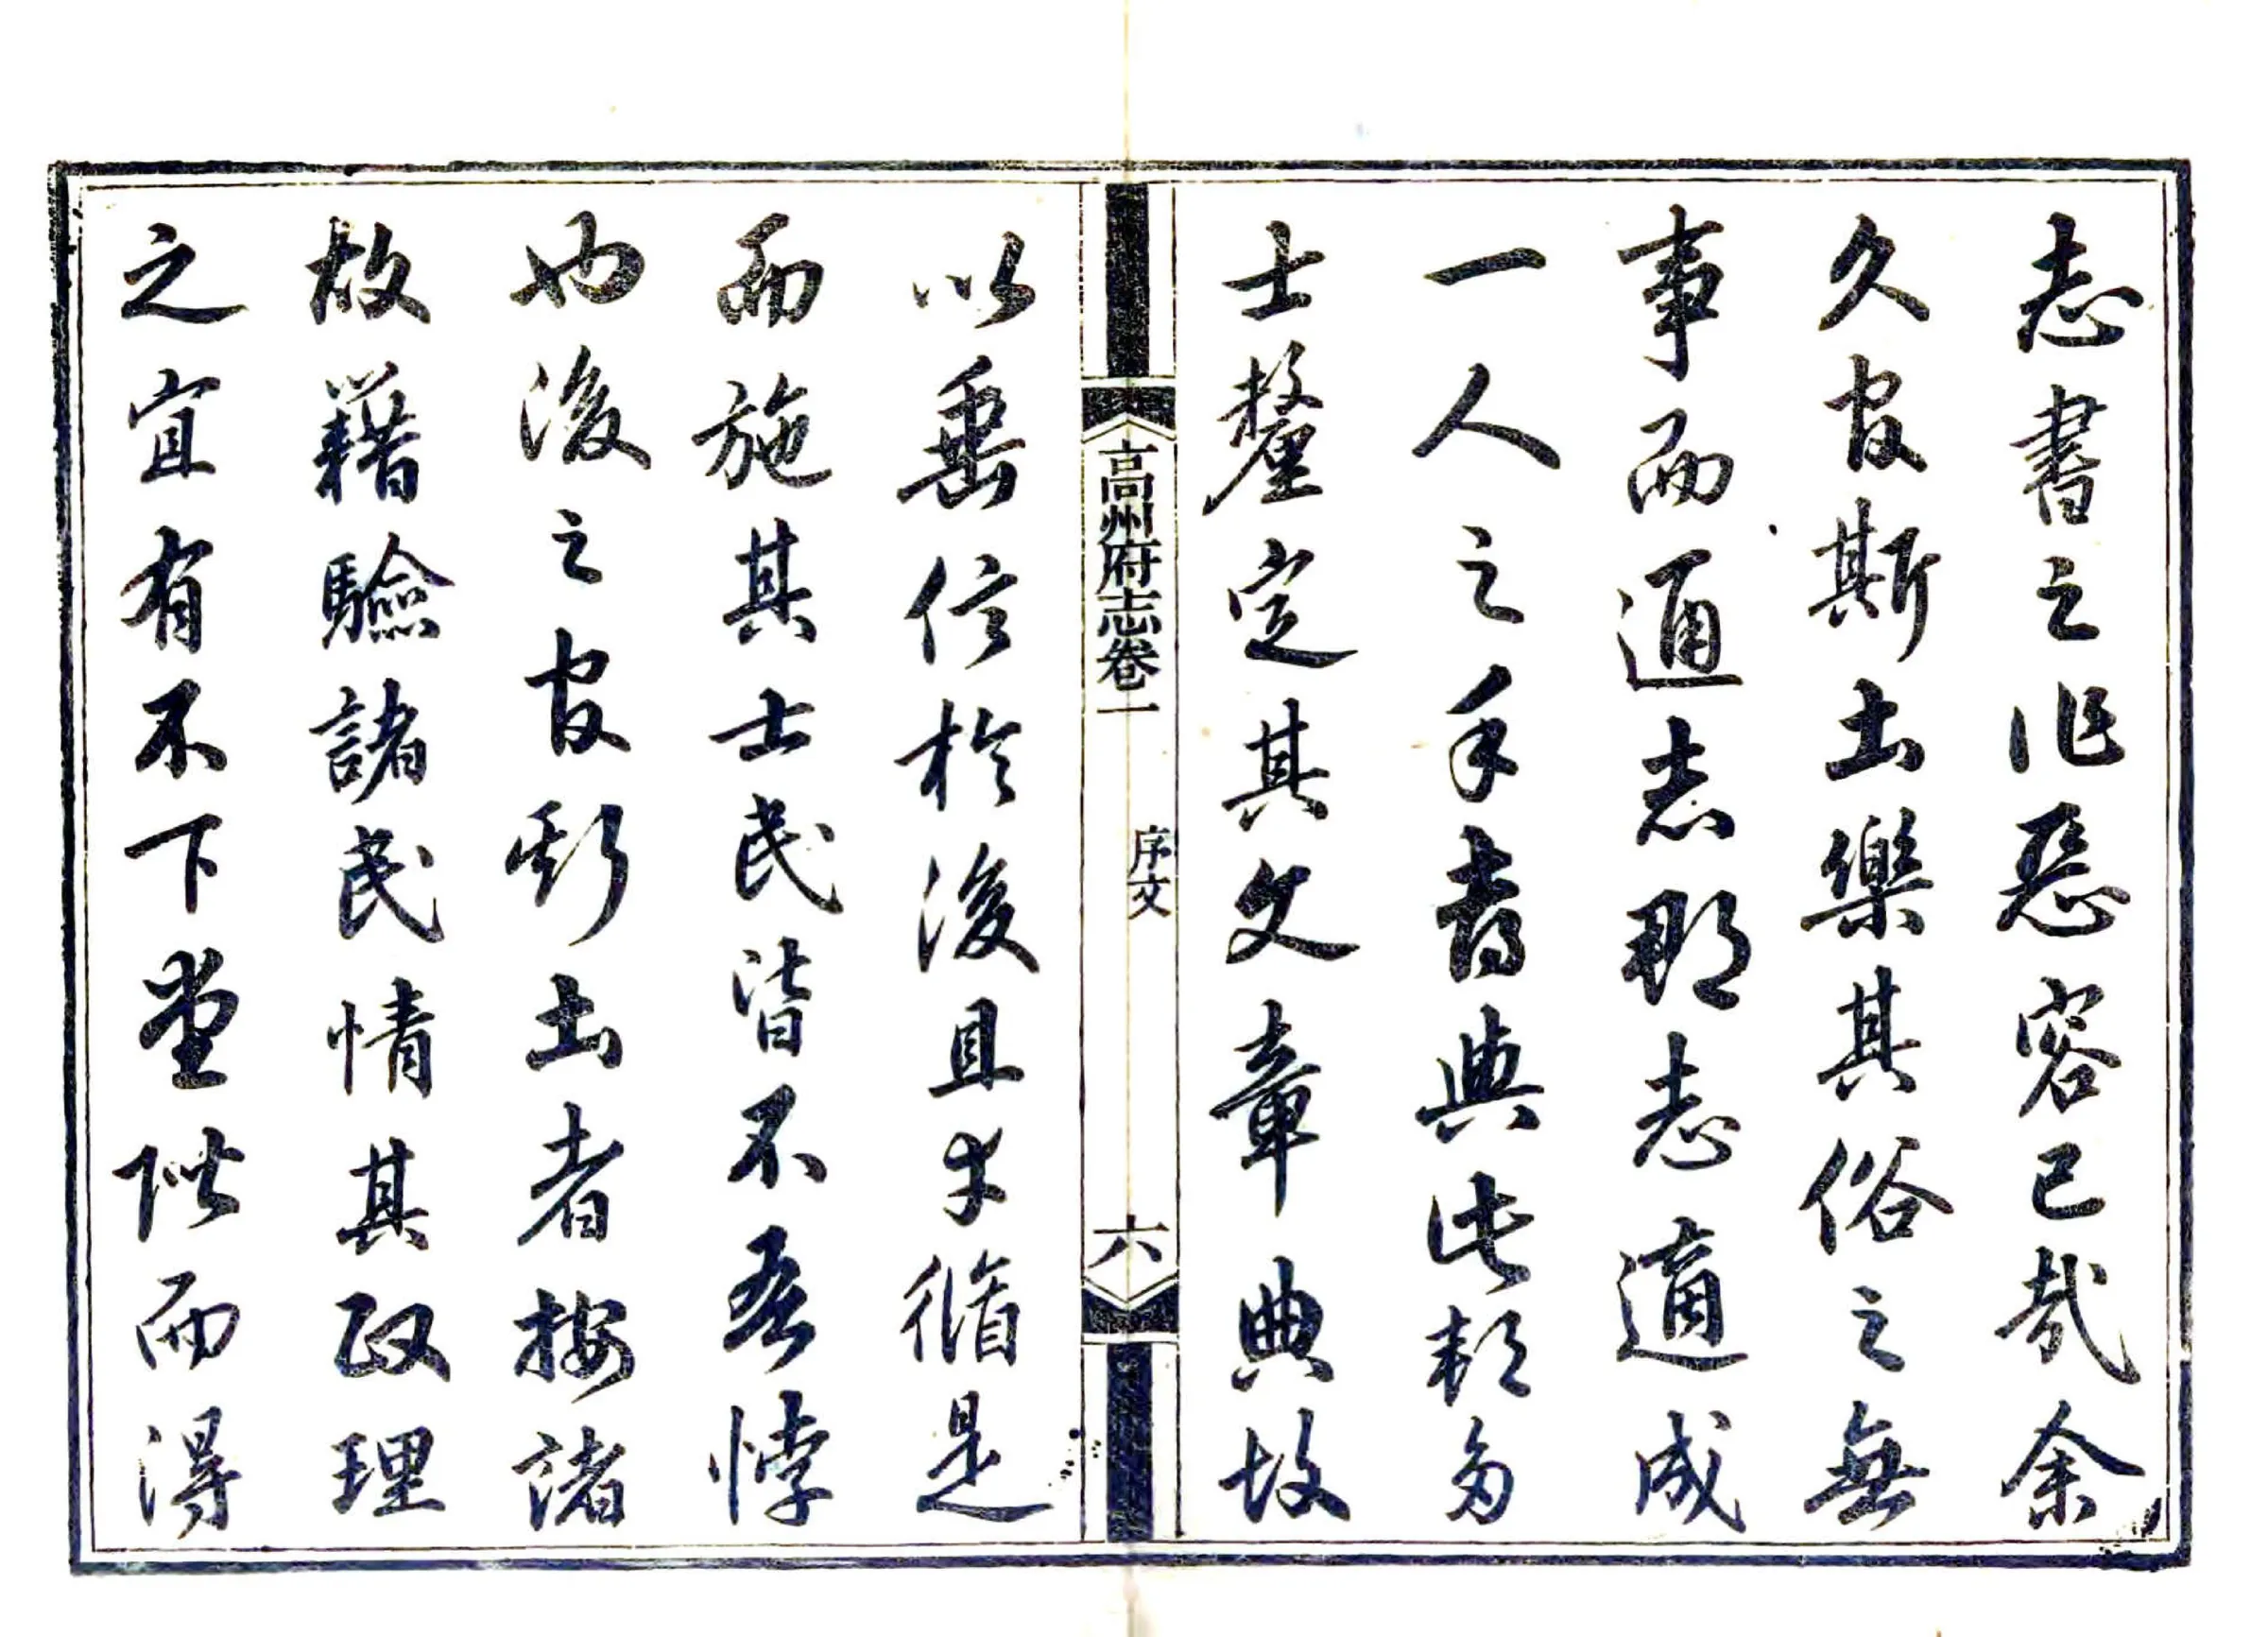 志書之作惡容已哉余
久官斯土樂其俗之無
事而通志郡志適成
一人之手與此多
士釐定其文章典故
高州府志卷一 序文 六
以垂信於後且求循是
而施其士民皆不吾悖
也後之官斯土者按諸
故籍驗諸民情其政理
之宜有不下堂階而得